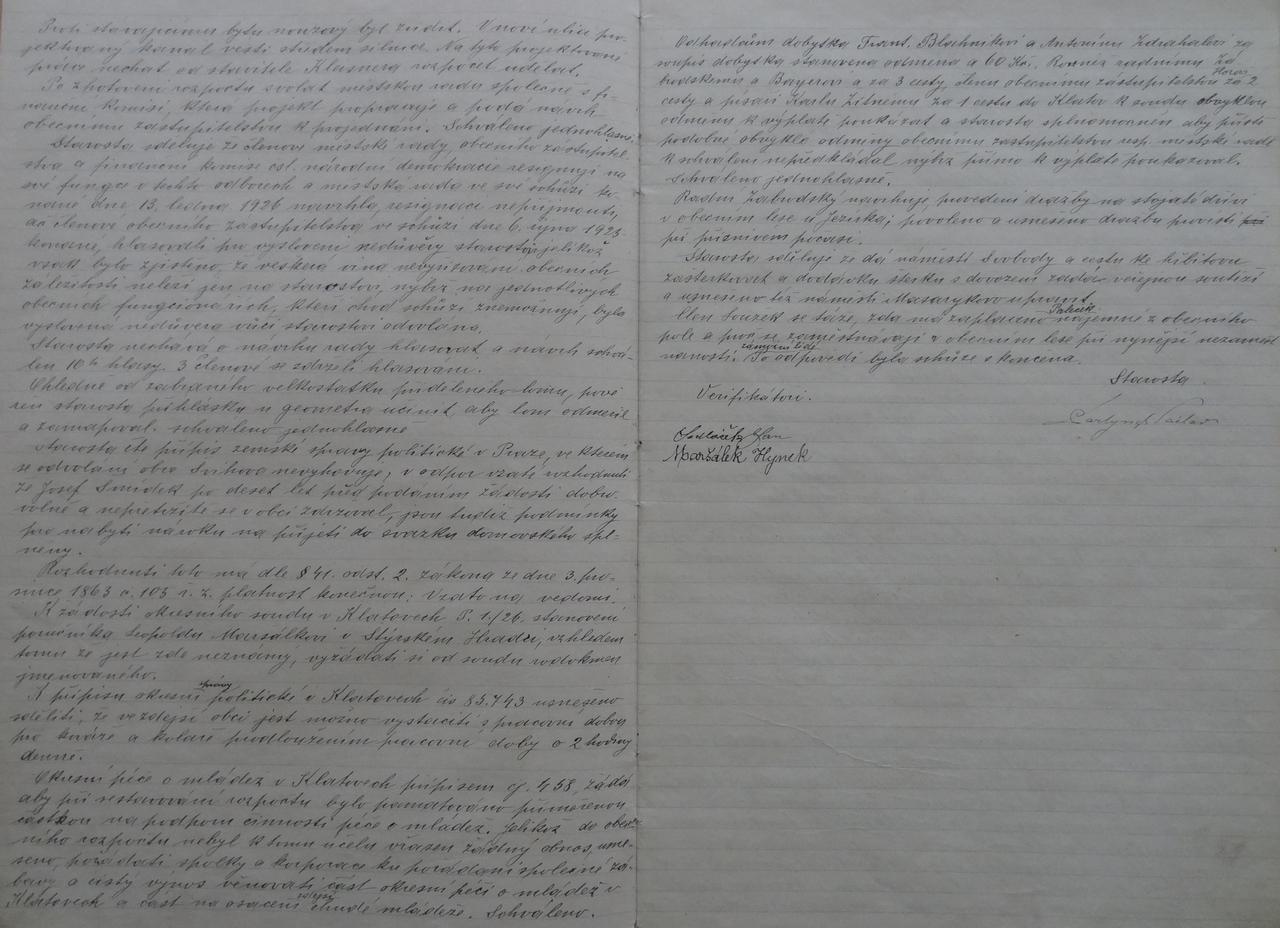 Proti stávajícímu bytu nouzový byl zřídit. V nové ulici pro-
jektovaný kanál vésti středem silnice. Na tyto projektované
práce nechat od stavitele Klasnera rozpočet udělat.
Po zhotovení rozpočtu svolat městskou radu společně s fi-
nanční komisí, která projekt propracuje a podá návrh
obecnímu zastupitelstvu k projednání. Schváleno jednohlasně.
Starosta sděluje že členové městské rady, obecního zastupitel-
stva a finanční komise čsl. národní demokracie resignují na
své funkce v těchto odborech a městská rada ve své schůzi ko-
nané dne 13. ledna 1926 navrhla, resignaci nepřijmouti,
ač členové obecního zastupitelstva ve schůzi dne 6. října 1925
konané, hlasovali pro vyslovení nedůvěry starostovi jelikož
však bylo zjištěno, že veškerá vina nevyřizování obecních
záležitostí neleží jen na starostovi, nýbrž na jednotlivých
obecních funkcionářích, kteří chod schůzí znemožňují, byla
vyslovená nedůvěra vůči starostovi odvolána.
Starosta nechává o návrhu rady hlasovat a návrh schvá-
len 10ti hlasy. 3 členové se zdrželi hlasování.
Ohledně od zabraného velkostatku přiděleného lomu, pově-
řen starosta přihlášku u geometra učinit, aby lom odměřil
a zamapoval. schváleno jednohlasně
Starosta čte přípis zemské správy politické v Praze, ve kterém
se odvolání obce Svihova nevyhovuje, v odpor vzaté rozhodnutí
že Josef Smídek po deset let před podáním žádosti dobro-
volně a nepřetržitě se v obci zdržoval, jsou tudíž podmínky
pro nabytí nároku na přijetí do svazku domovského spl-
něny.
Rozhodnutí toto má dle § 41. odst. 2. zákona ze dne 3. pro-
since 1863 č. 105 ř. z. platnost konečnou. Vzato na vědomí.
K žádosti okresního soudu v Klatovech P. 1/26. stanovení
poručníka Leopoldu Maršálkovi v Štýrském Hradci, vzhledem
tomu že jest zde neznámý, vyžádati si od soudu rodokmen
jmenovaného.
K přípisu okresní správy politické v Klatovech čís 85.743 usneseno
sděliti, že ve zdejší obci jest možno vystačiti s pracovní dobou
pro kováře a koláře prodloužením pracovní doby o 2 hodiny
denně.
Okresní péče o mládež v Klatovech přípisem čj. 458, žádá
aby při sestavování rozpočtu bylo pamatováno přiměřenou
částkou na podporu činnosti péče o mládež. Jelikož do obec-
ního rozpočtu nebyl k tomu účelu vřazen žádný obnos, usne-
seno, požádati spolky a korporace ku pořádání společné zá-
bavy a čistý výnos věnovati část okresní péči o mládež v
Klatovech a část na ošacení zdejší chudé mládeže. Schváleno.
Odhadčím dobytka Frant. Blahníkovi a Antonínu Zdráhalovi za
soupis dobytka stanovena odměna à 60 Kč. Rovněž radnímu Zá-
brodskému a Bayerovi a za 3 cesty, členu obecního zastupitelstva za 2
cesty a písaři Karlu Žitnému za 1 cestu do Klatov k soudu obvyklou
odměnu k výplatě poukázat a starosta splnomocněn aby příště
podobné obvyklé odměny obecnímu zastupitelstvu resp. městské radě
k schválení nepředkládal nýbrž přímo k výplatě poukazoval.
Schváleno jednohlasně.
Radní Zábrodský navrhuje, provedení dražby na stojaté dříví
v obecním lese u Jezírka; povoleno a usneseno dražbu provésti
při příznivém počasí.
Starosta sděluje že dá náměstí Svobody a cestu ke hřbitovu
zaštěrkovat a dodávku štěrku s dovozem zadá veřejnou soutěží
a usneseno též náměstí Masarykovo upravit.
Člen Souček se táže, zda má zaplaceno nájemné z obecního
pole a proč se zaměstnávají v obecním lese při nynější nezaměst-
nanosti. Po odpovědi byla schůze skončena.
Starosta.
Verifikátoři.
Maršálek Hynek